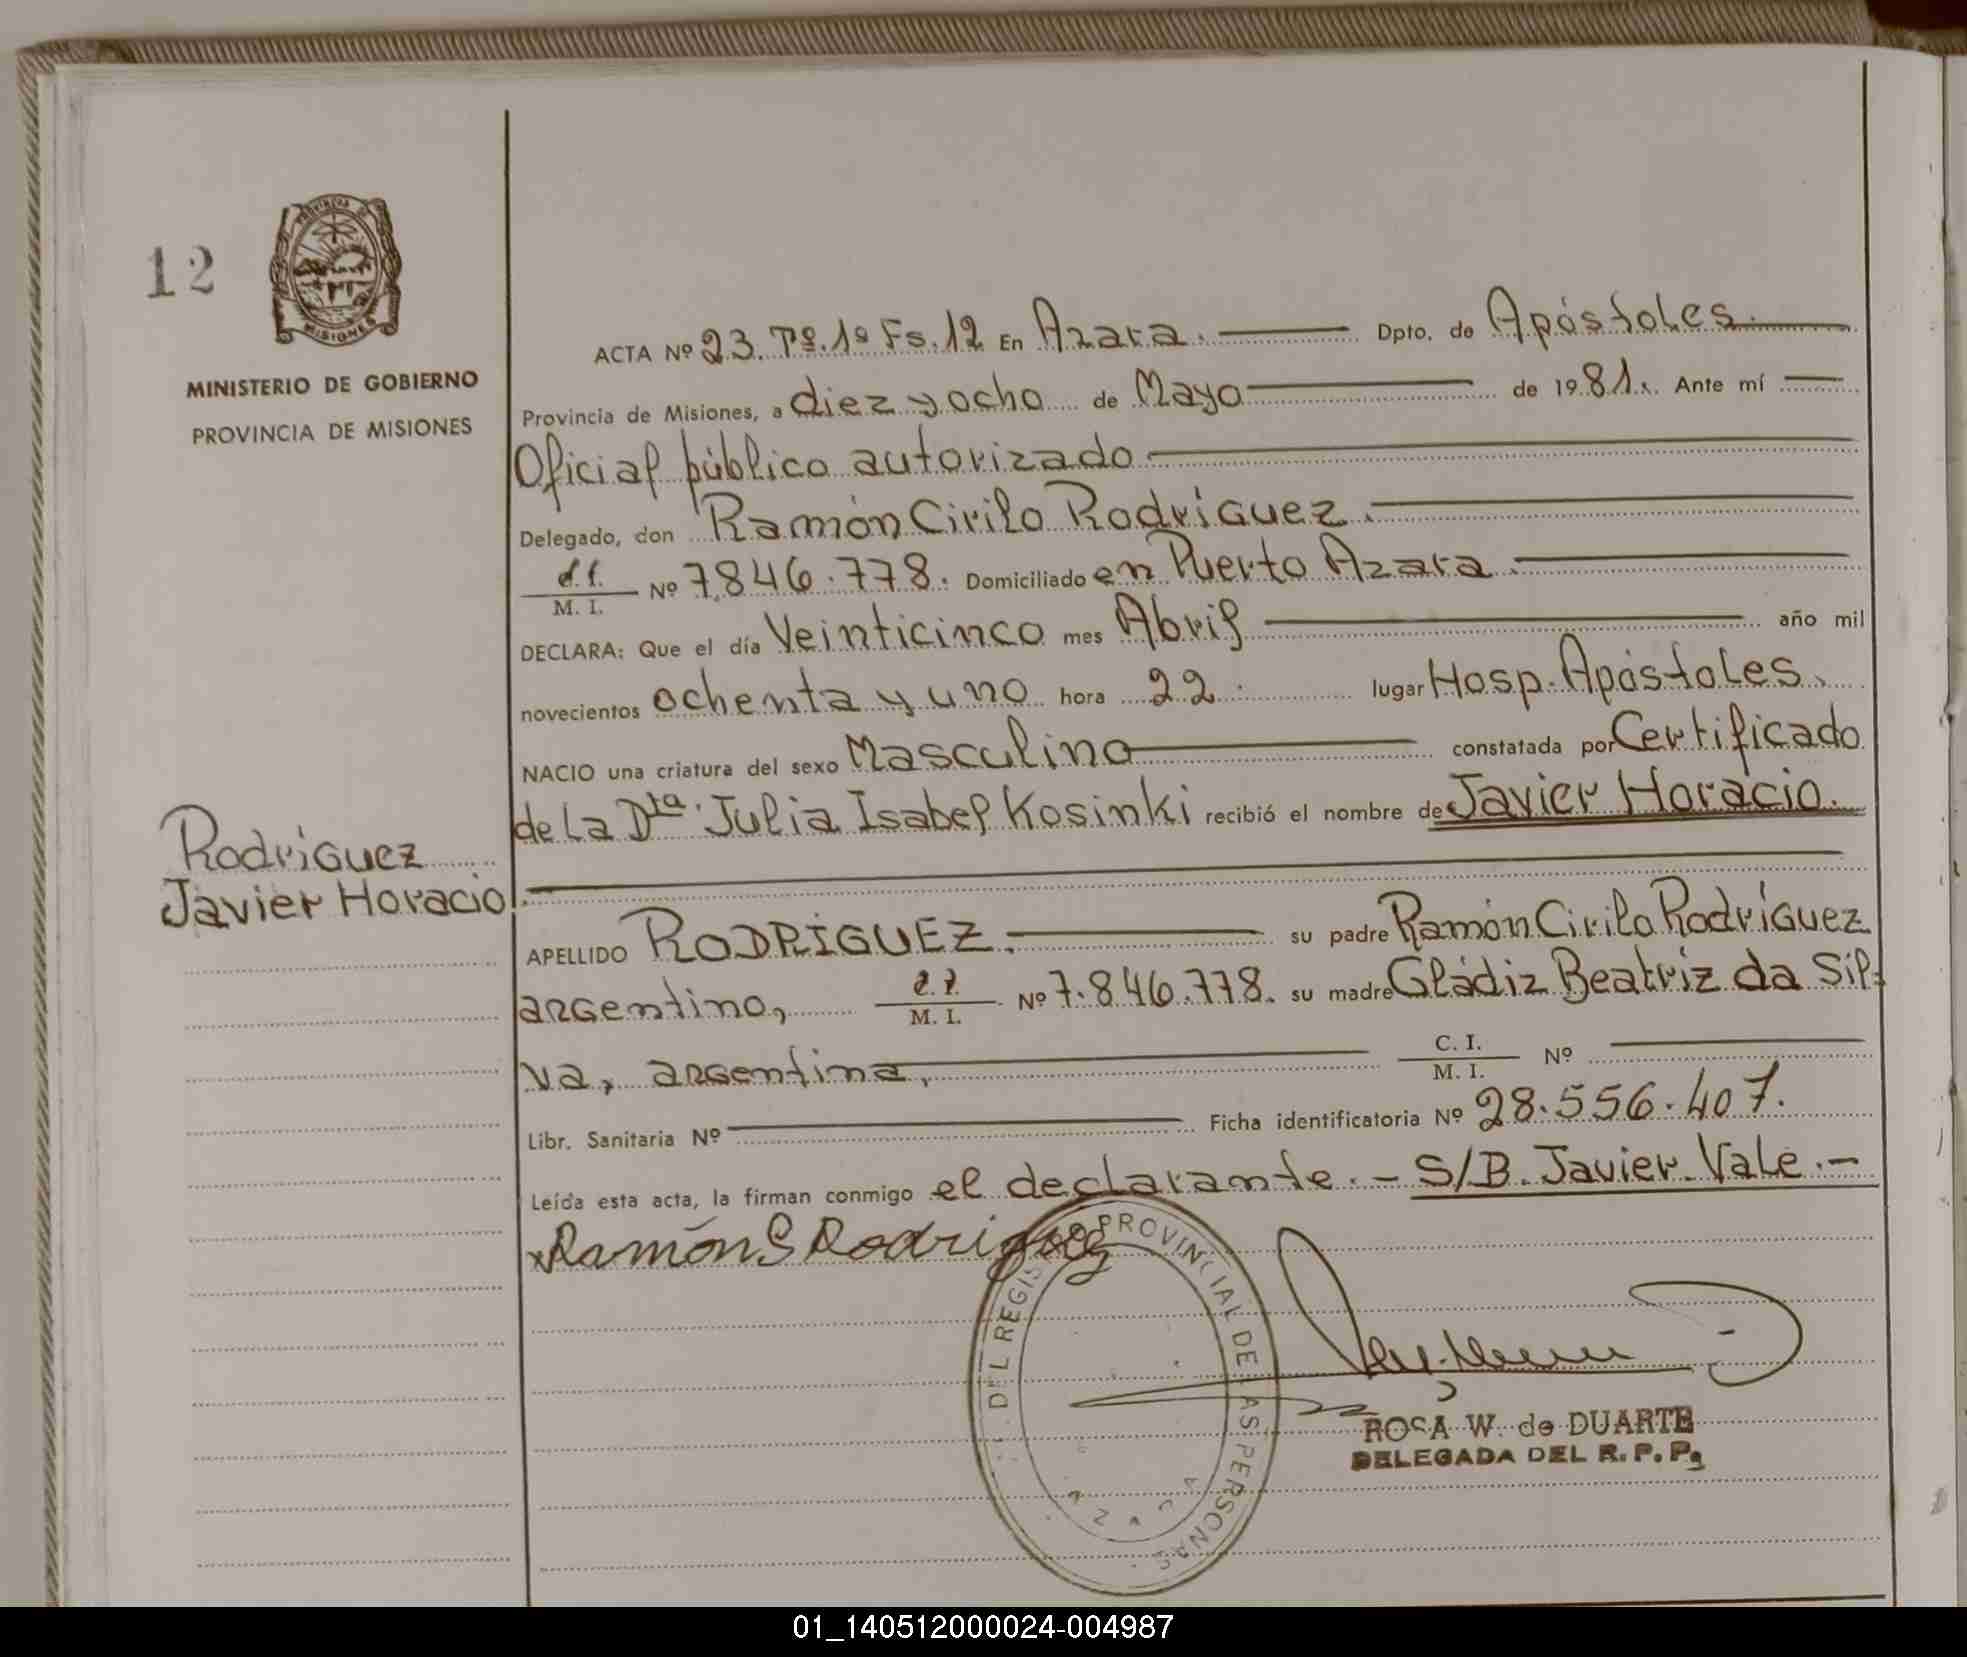 12
PROVINCIA DE
MISIONES
MINISTERIO DE GOBIERNO
PROVINCIA DE MISIONES
Rodríguez
Javier Horacio
ACTA Nº 23. Tº. 1º Fs. 12 En Azara. Dpto. de Apóstoles.
Provincia de Misiones, a diez y ocho de Mayo de 1981. Ante mí
Oficial público autorizado
Delegado, don Ramón Cirilo Rodríguez.
M. I. Nº 7.846.778. Domiciliado en Puerto Azara.
DECLARA: Que el día Veinticinco mes Abril año mil
novecientos ochenta y uno hora 22. lugar Hosp. Apóstoles.
NACIO una criatura del sexo Masculino constatada por Certificado
de la Dra. Julia Isabel Kosinki recibió el nombre de Javier Horacio.
APELLIDO RODRÍGUEZ. su padre Ramón Cirilo Rodríguez
argentino, M. I. Nº 7.846.778. su madre Gládiz Beatriz da Sil=
va, argentina. C. I. M. I. Nº
Libr. Sanitaria Nº Ficha identificatoria Nº 28.556.407.
Leída esta acta, la firman conmigo el declarante. - S/B. Javier. Vale.-
Ramón C Rodriguez
DEL REGISTRO PROVINCIAL DE LAS PERSONAS
AZARA
ROSA W. de DUARTE
DELEGADA DEL R. P. P.
01_140512000024-004987